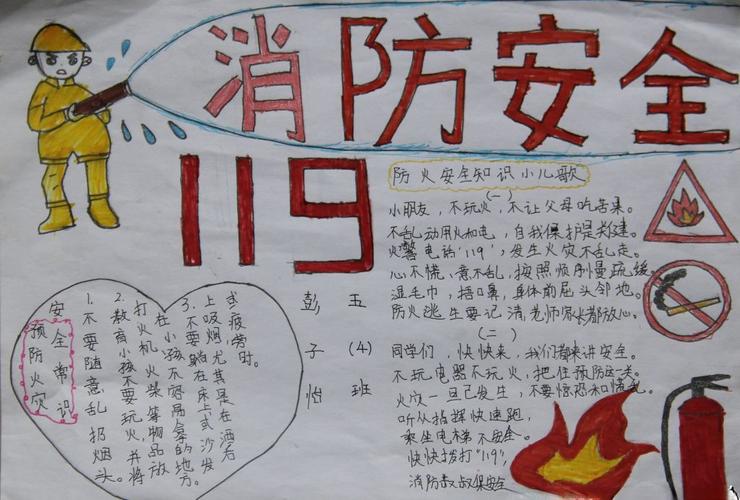 消防安全
119
防火安全知识小儿歌
(一)
小朋友，不玩火，不让父母吃苦果。
不乱动用火和电，自我保护是关建。
火警电话‘119’，发生火灾不乱走。
心不慌、意不乱，按照顺序慢疏缓。
湿毛巾，捂口鼻，身体前屈头邻地。
防火逃生要记清，老师家长都放心。
(二)
同学们，快快来，我们都来讲安全。
不玩电器不玩火，把住预防这一关。
火灾一旦已发生，不要惊恐和慌乱。
听从指挥快速跑，
乘坐电梯不安全。
快快拨打“119”，
消防叔叔保安全
彭子怡
五(4)班
安全常识
预防火灾
1.不要随意乱扔烟头。
2.教育小孩不要玩火，并将
打火机、火柴等物品放
在小孩不容易拿的地方。
3.不要躺在床上或沙发
上吸烟，尤其是在酒后
或疲劳时。